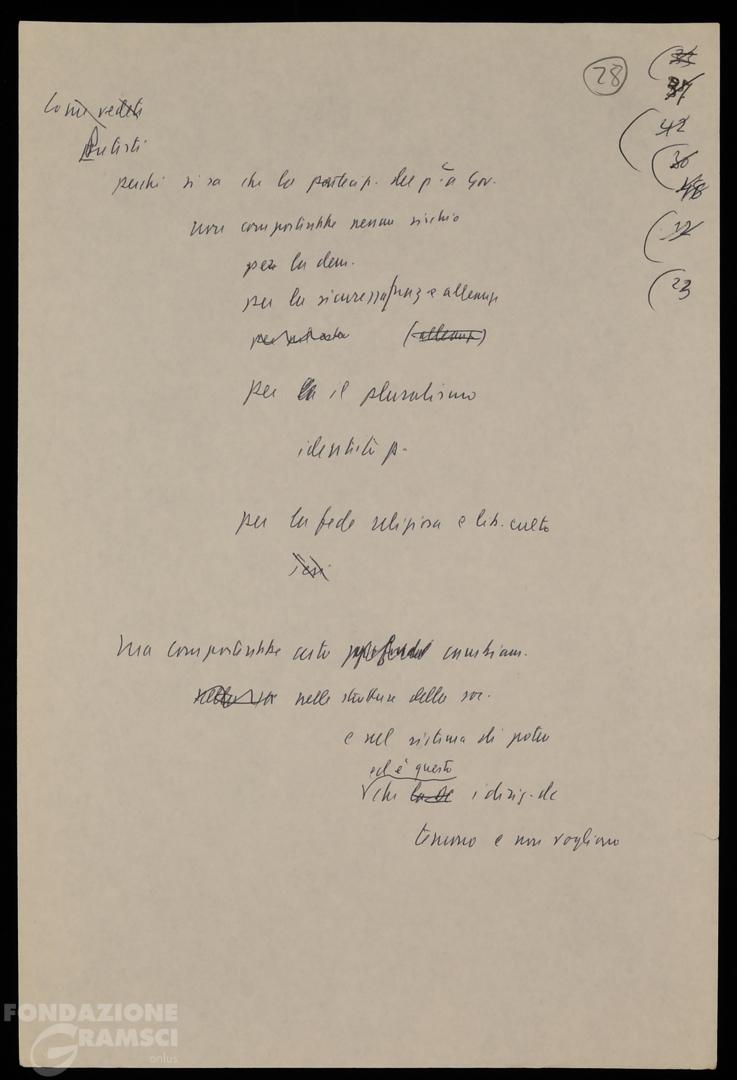 28
(35
37
(42
(36
48
(12
(23
Come vedete
Autisti
perché si sa che la partecip. del p. a Gov.
non comporterebbe nessun rischio
per la dem.
per la sicurezza naz e alleanze
(alleanze)
per la il pluralismo
identità p.
per la fede religiosa e lib. culto
così
ma comporterebbe certo profondi cambiam.
nelle strutture della soc.
e nel sistema di potere
ed è questo
che la DC i dirig. dc
temono e non vogliono
FONDAZIONE
GRAMSCI
onlus